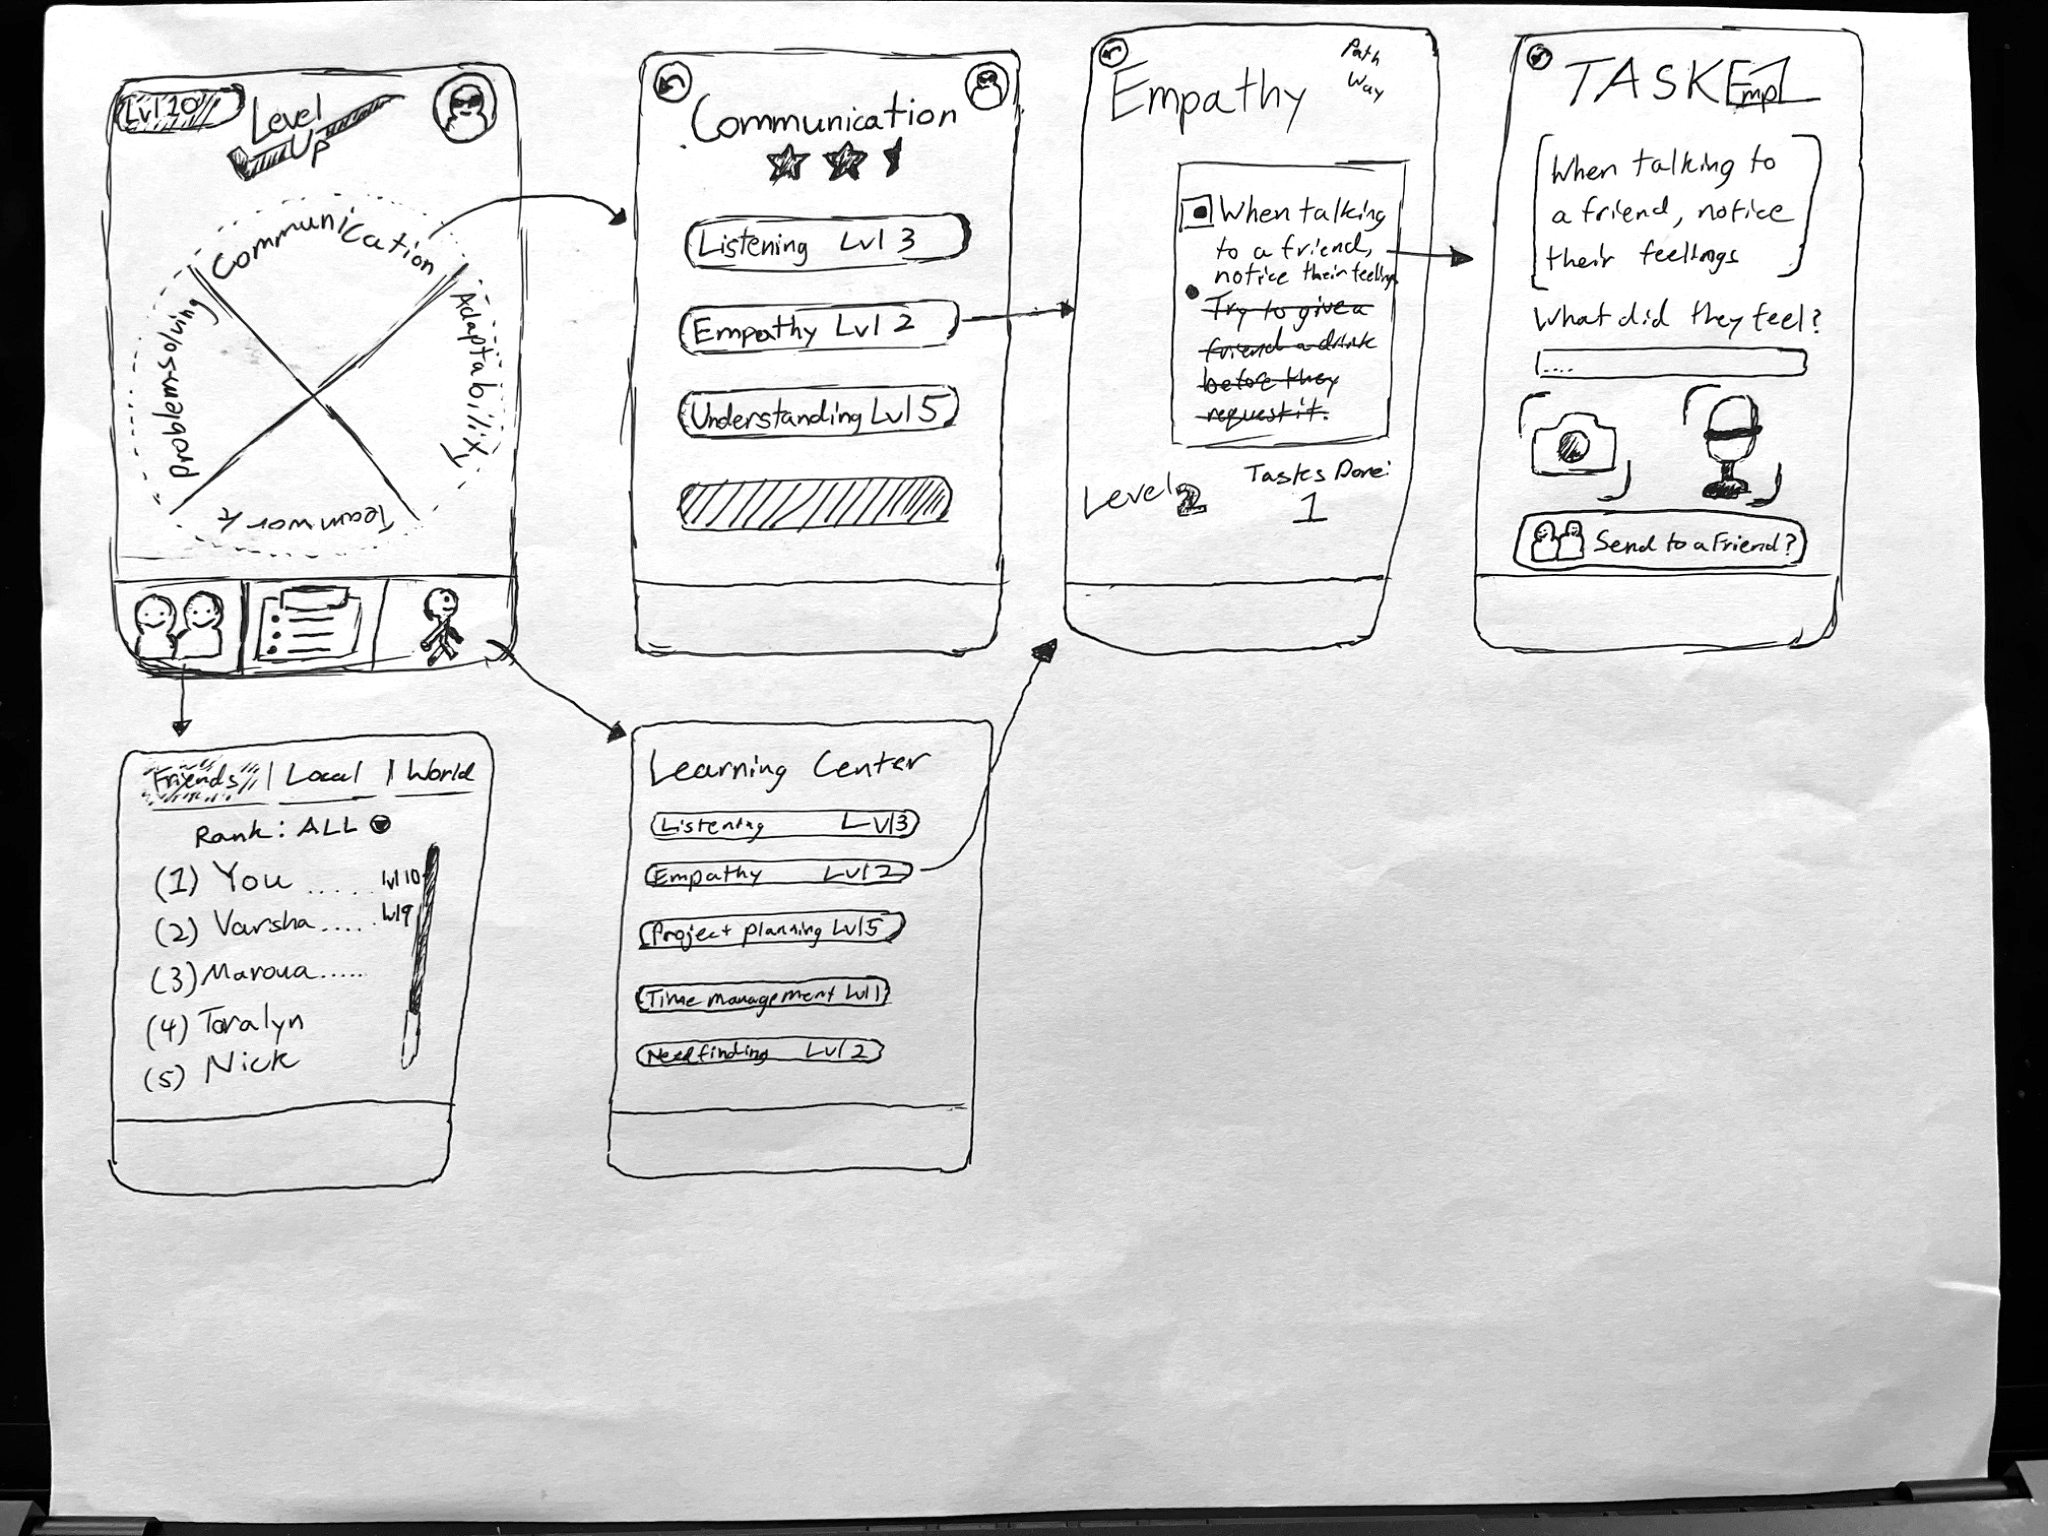 Lvl 10
Level
Up
Communication
Adaptability
Teamwork
Problem-solving
Communication
Listening Lvl 3
Empathy Lvl 2
Understanding Lvl 5
Path
Way
Empathy
When talking
to a friend,
notice their feelings
Try to give a
friend a drink
before they
request it.
Level 2
Tasks Done:
1
TASK
Emp
When talking to
a friend, notice
their feelings
What did they feel?
....
Send to a Friend?
Friends | Local | World
Rank: ALL
(1) You ..... lvl 10
(2) Varsha .... lvl 9
(3) Maroua .....
(4) Toralyn
(5) Nick
Learning Center
Listening Lvl 3
Empathy Lvl 2
Project planning Lvl 5
Time management Lvl 1
Needfinding Lvl 2